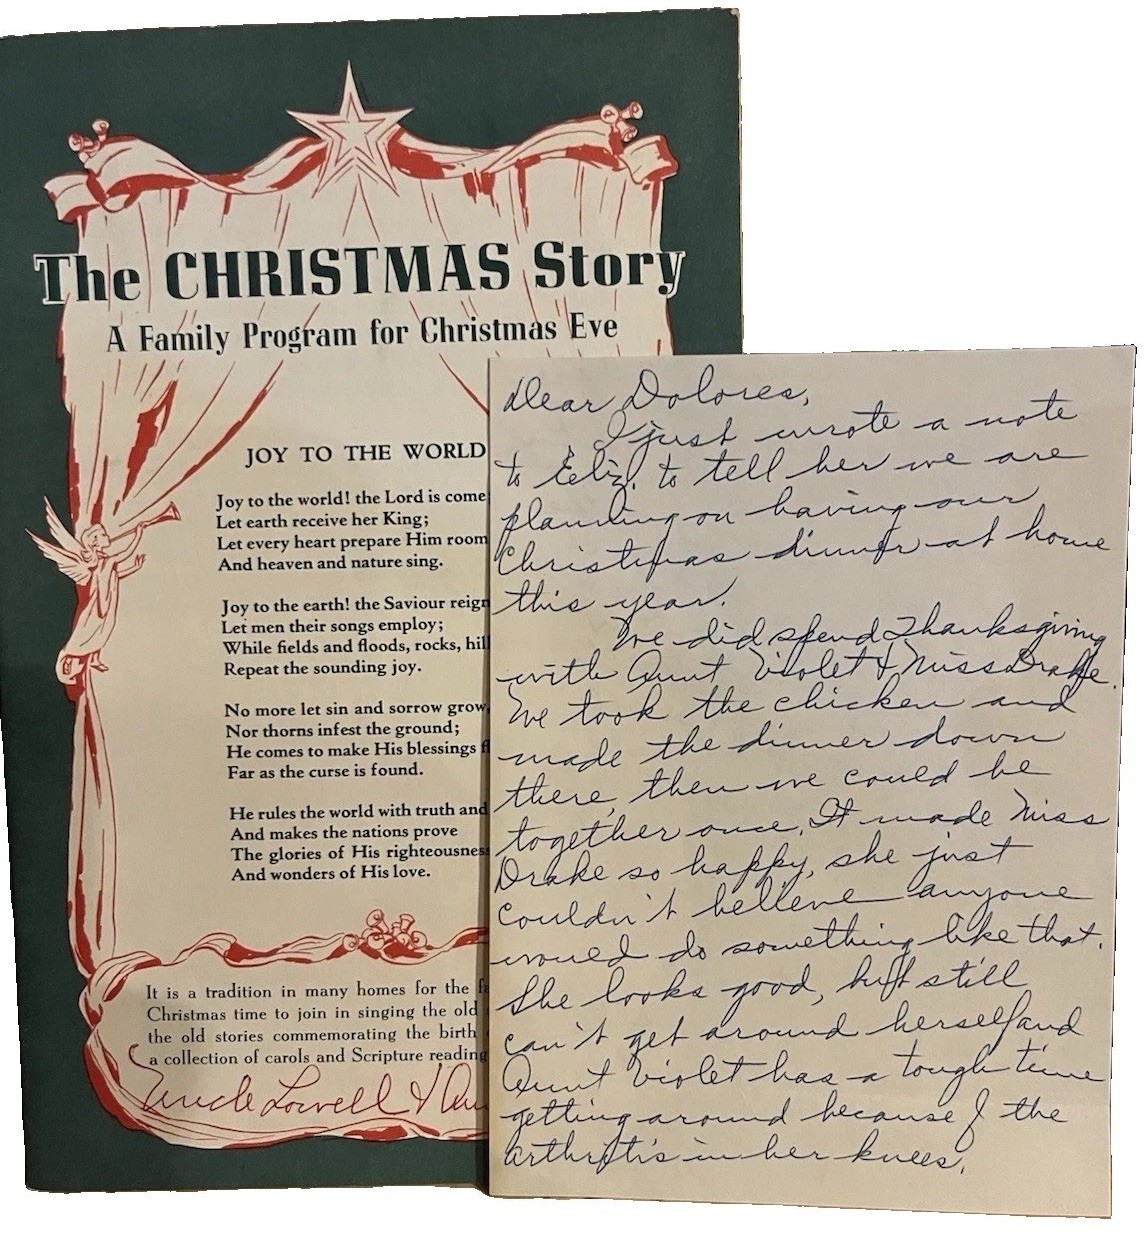 The CHRISTMAS Story
A Family Program for Christmas Eve
JOY TO THE WORLD
Joy to the world! the Lord is come
Let earth receive her King;
Let every heart prepare Him room
And heaven and nature sing.
Joy to the earth! the Saviour reign
Let men their songs employ;
While fields and floods, rocks, hil
Repeat the sounding joy.
No more let sin and sorrow grow,
Nor thorns infest the ground;
He comes to make His blessings f
Far as the curse is found.
He rules the world with truth and
And makes the nations prove
The glories of His righteousness
And wonders of His love.
It is a tradition in many homes for the fa
Christmas time to join in singing the old
the old stories commemorating the birth
a collection of carols and Scripture reading
Uncle Lowell &
Dear Dolores,
I just wrote a note
to Eliz. to tell her we are
planning on having our
Christmas dinner at home
this year.
We did spend Thanksgiving
with Aunt Violet & Miss Drake.
We took the chicken and
made the dinner down
there, then we could be
together once. It made Miss
Drake so happy, she just
couldn't believe anyone
would do something like that.
She looks good, but still
can't get around herself and
Aunt Violet has a tough time
getting around because of the
arthritis in her knees.